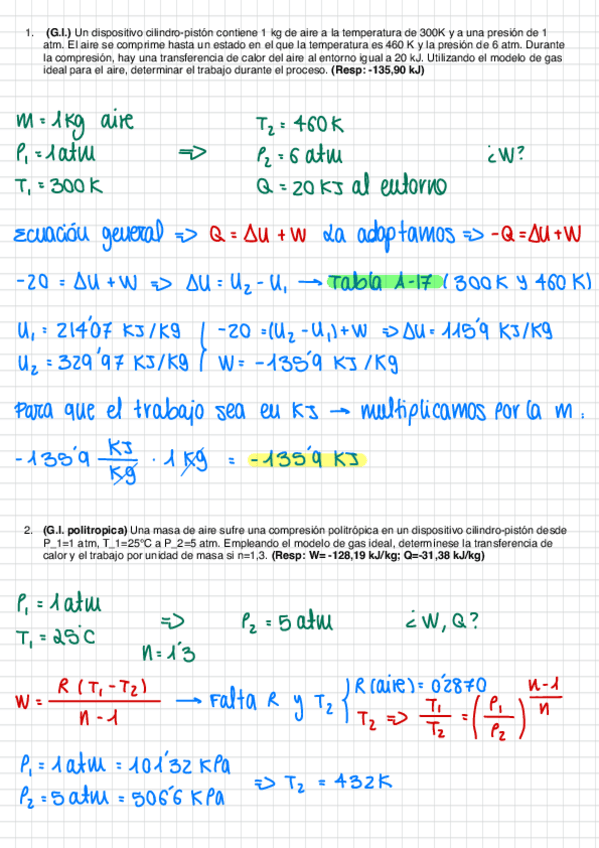 1. (G.I.) Un dispositivo cilindro-pistón contiene 1 kg de aire a la temperatura de 300K y a una presión de 1
atm. El aire se comprime hasta un estado en el que la temperatura es 460 K y la presión de 6 atm. Durante
la compresión, hay una transferencia de calor del aire al entorno igual a 20 kJ. Utilizando el modelo de gas
ideal para el aire, determinar el trabajo durante el proceso. (Resp: -135,90 kJ)
m = 1 kg aire
P₁ = 1 atm
T₁ = 300 K
=>
T₂ = 460 K
P₂ = 6 atm
Q = 20 KJ al entorno
¿W?
Ecuación general => Q = ΔU + W La adaptamos => -Q = ΔU + W
-20 = ΔU + W => ΔU = U₂ - U₁ → Tabla A-17 (300 K y 460 K)
U₁ = 214'07 KJ/Kg { -20 = (U₂ - U₁) + W => ΔU = 115'9 KJ/Kg
U₂ = 329'97 KJ/Kg { W = -135'9 KJ/Kg
Para que el trabajo sea en KJ → multiplicamos por la m:
-135'9 KJ/Kg · 1 Kg = -135'9 KJ
2. (G.I. politropica) Una masa de aire sufre una compresión politrópica en un dispositivo cilindro-pistón desde
P_1=1 atm, T_1=25°C a P_2=5 atm. Empleando el modelo de gas ideal, determinese la transferencia de
calor y el trabajo por unidad de masa si n=1,3. (Resp: W= -128,19 kJ/kg; Q=-31,38 kJ/kg)
P₁ = 1 atm
T₁ = 25°C
=>
n = 1'3
P₂ = 5 atm
¿W, Q?
W = R (T₁ - T₂) / n - 1 → Falta R y T₂ { R (aire) = 0'2870
T₂ => T₁/T₂ = (P₁/P₂)^(n-1/n)
P₁ = 1 atm = 101'32 KPa
P₂ = 5 atm = 506'6 KPa
=> T₂ = 432 K